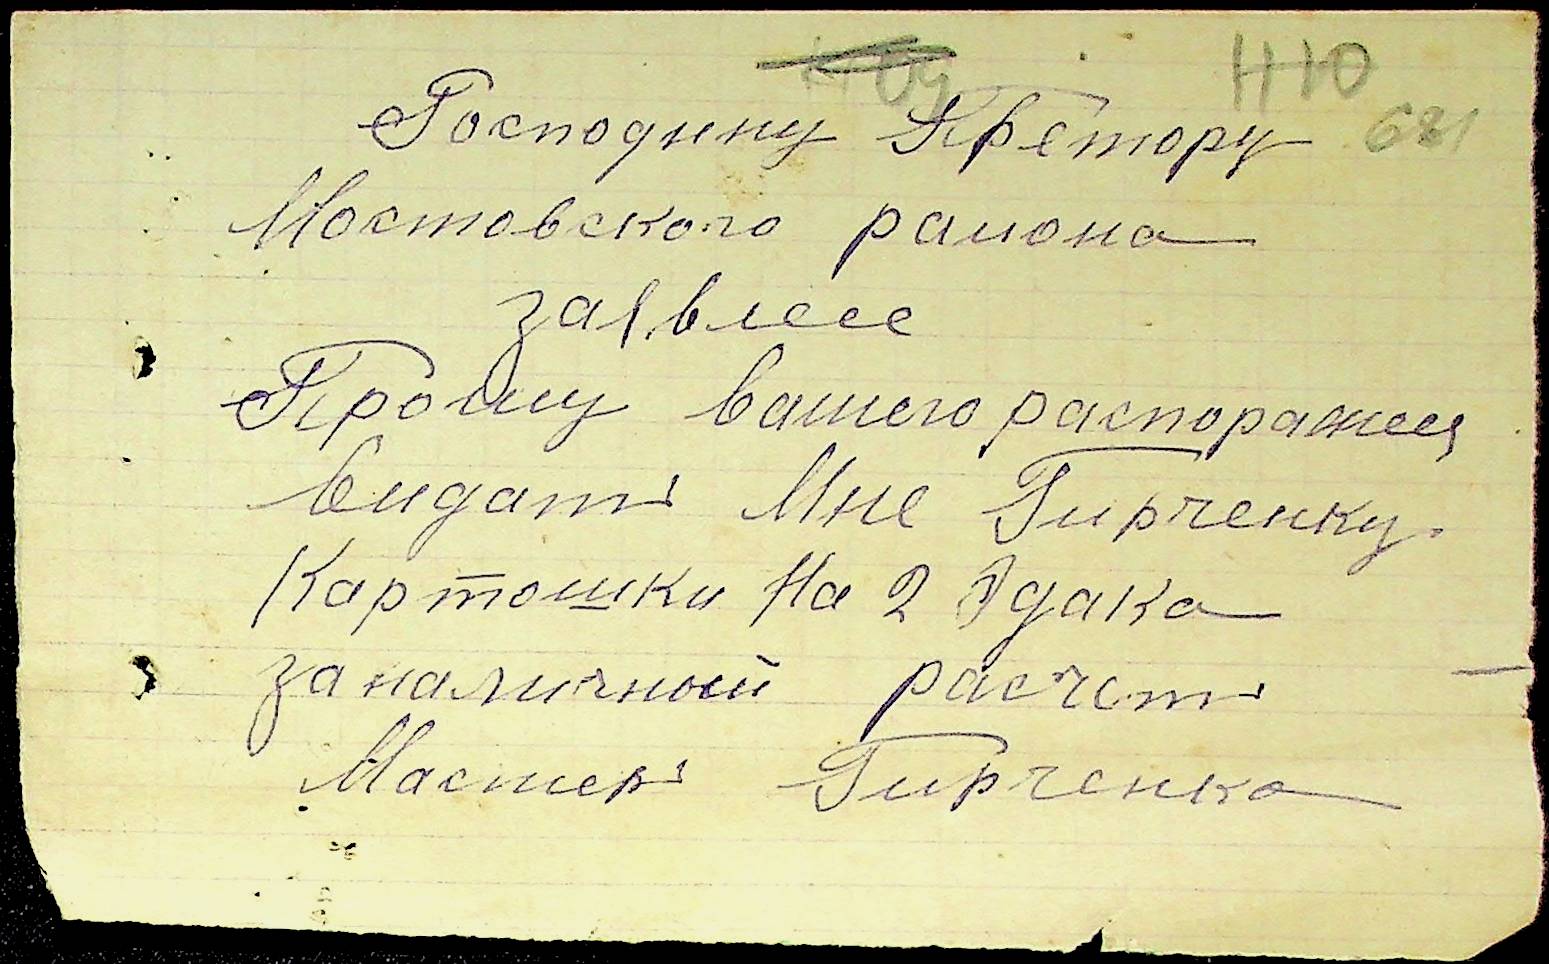 410
681
Господину Претору
Мостовского раиона
заявлеее
Прошу вашего распоражеея
видатъ Мне Гирченку
Картошки На 2 Эдака
заналичной расчотъ
Мастеръ Гирченко